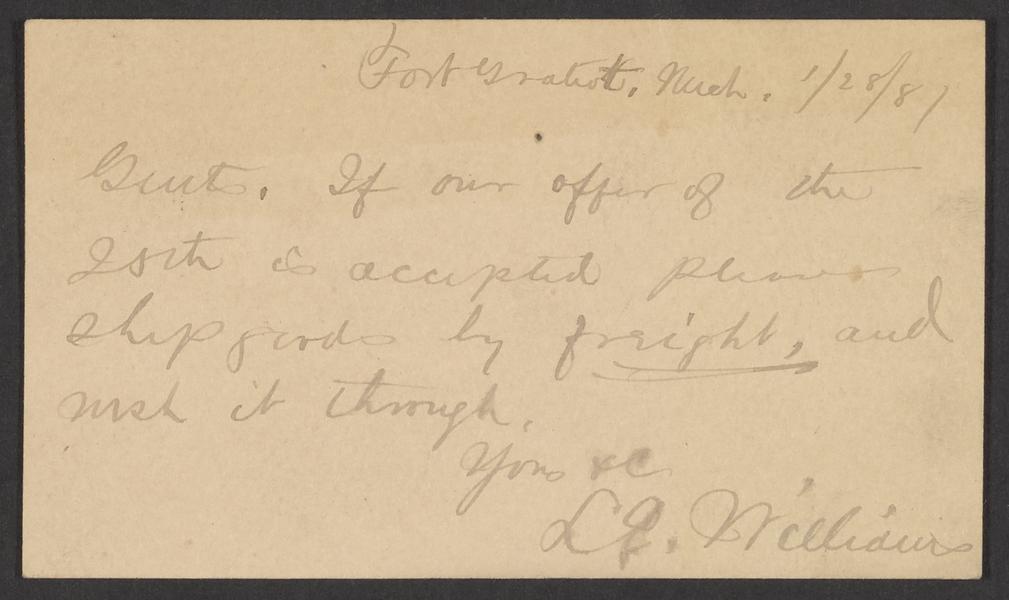 Fort Gratiot, Mich. 1/28/87
Gents. If our offer of the
25th is accepted please
ship goods by freight, and
rush it through.
Yours &c
L. Williams